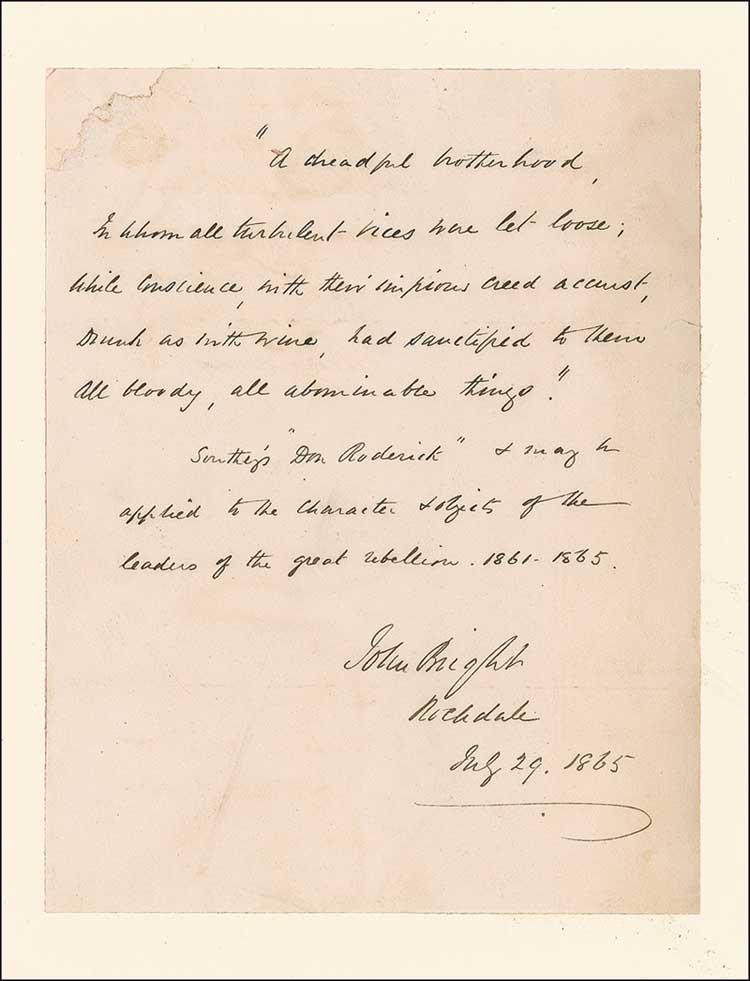 "A dreadful brotherhood,
In whom all turbulent vices were let loose;
While Conscience, with their impious creed accurst,
Drunk as with wine, had sanctified to them
All bloody, all abominable things."
Southey's "Don Roderick" & may be
applied to the character & objects of the
leaders of the great rebellion. 1861-1865.
John Bright
Rochdale
July 29. 1865